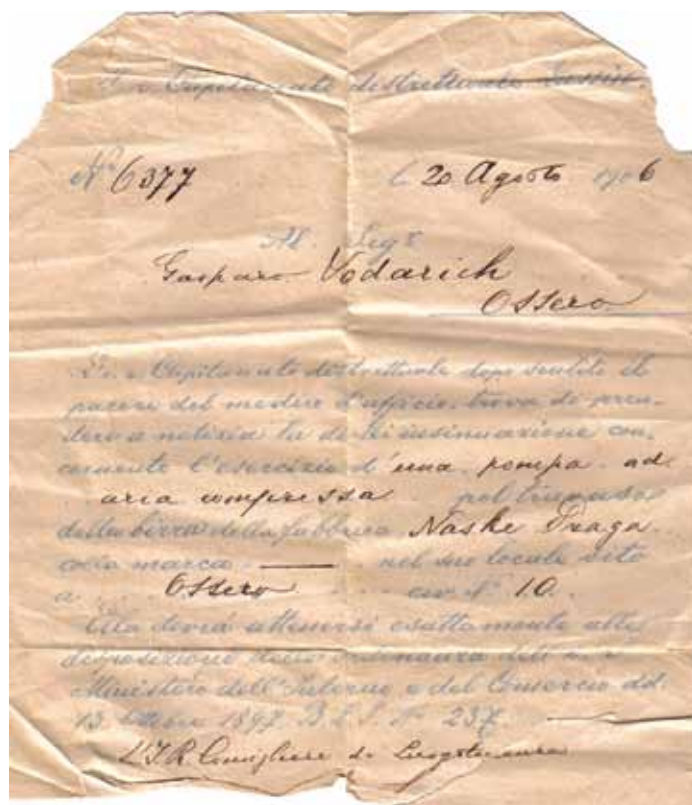 I. r. Capitanato distrettuale Lussin.
Nº 6377 li 20 Agosto 1906
Al Sigr
Gasparo Vodarich
Ossero
L'i. r. Capitanato distrettuale dopo sentito il
parere del medico d'ufficio, trova di pren-
dere a notizia la di Lei insinuazione con-
cernente l'esercizio d'una pompa ad
aria compressa pel travaso
della birra della fabbrica Naske Praga
colla marca — nel suo locale sito
a Ossero civ. Nº 10.
Ella dovrà attenersi esattamente alle
disposizioni Ordinanza dell' i. r.
Ministero dell'Interno e del Comercio dd.
13 1897 B. L. I. Nº 237.
L'I. R. Consigliere di Luogotenenza